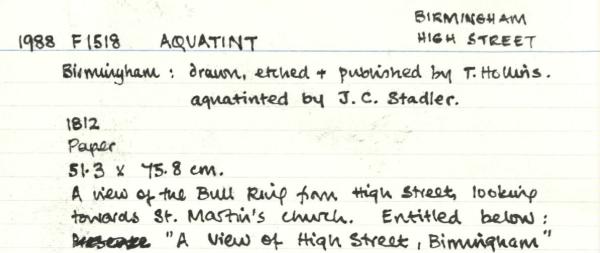 BIRMINGHAM
1988 F1518 AQUATINT HIGH STREET
Birmingham : drawn, etched + published by T. Hollins.
aquatinted by J.C. Stadler.
1812
Paper
51.3 x 75.8 cm.
A view of the Bull Ring from High Street, looking
towards St. Martin's church. Entitled below :
"A View of High Street, Birmingham"